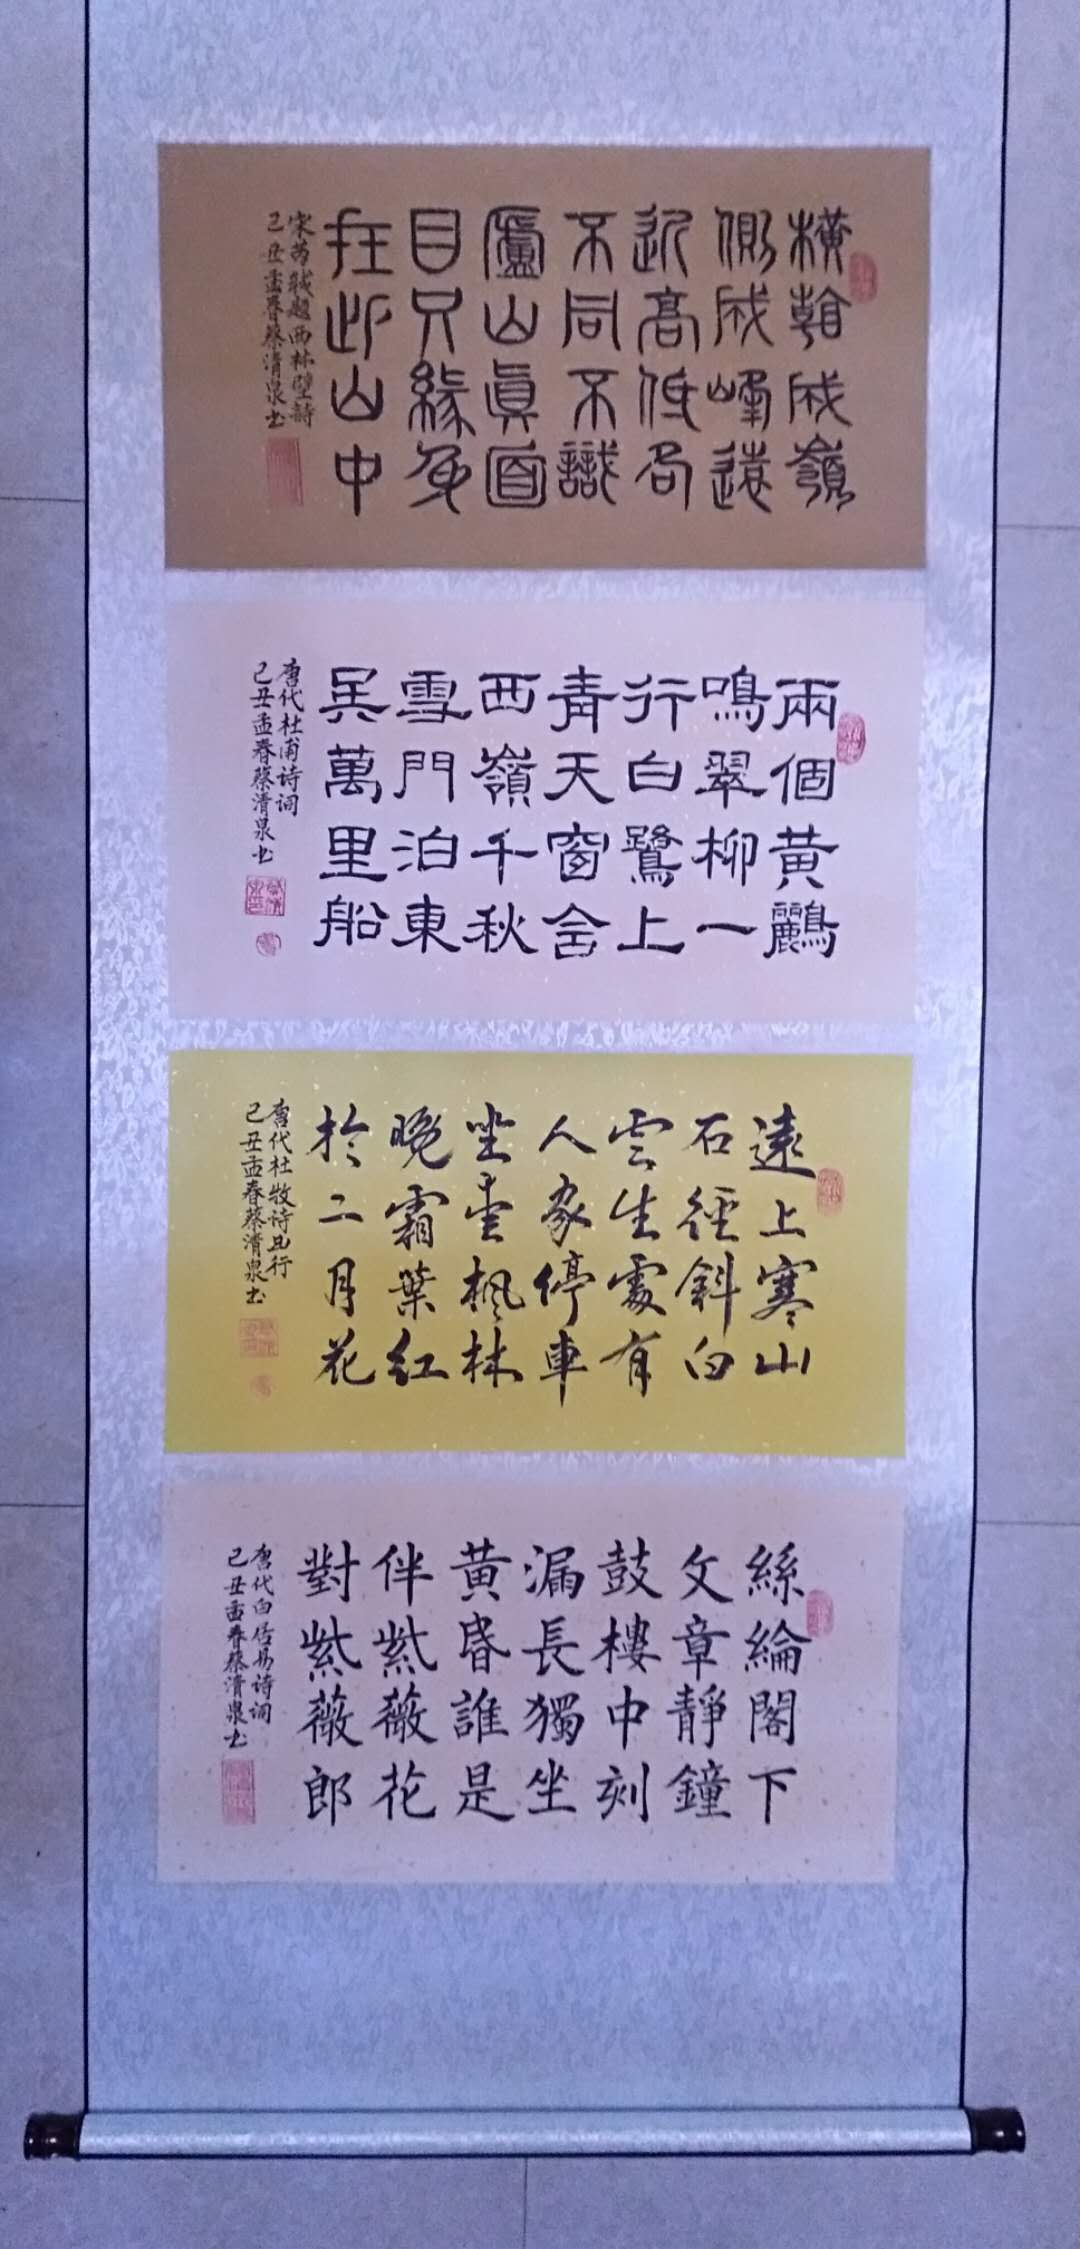 橫看成嶺
側成峰遠
近高低各
不同不識
廬山眞面
目只緣身
在此山中
宋苏軾題西林壁詩
己丑孟春蔡清泉书
兩個黃鸝
鳴翠柳一
行白鷺上
青天窗含
西嶺千秋
雪門泊東
吳萬里船
唐代杜甫诗词
己丑孟春蔡清泉书
遠上寒山
石徑斜白
雲生處有
人家停車
坐愛楓林
晚霜葉红
於二月花
唐代杜牧诗山行
己丑孟春蔡清泉书
絲綸閣下
文章靜鐘
鼓樓中刻
漏長獨坐
黃昏誰是
伴紫薇花
對紫薇郎
唐代白居易诗词
己丑孟春蔡清泉书